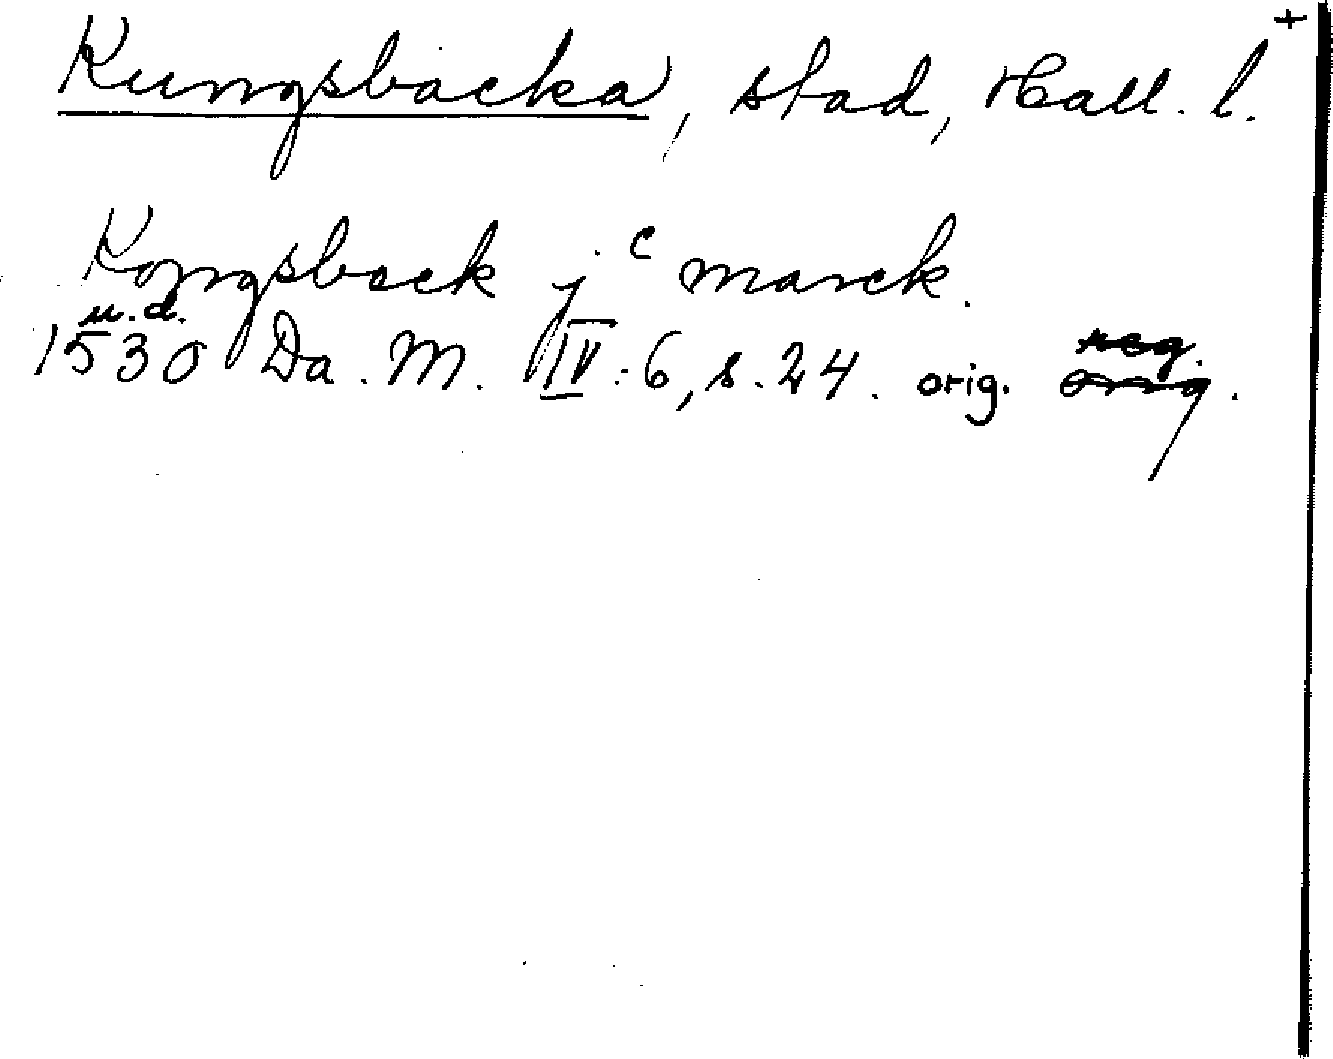 Kungsbacka, stad, Hall. l. +
Kongsback j c marck.
u.d.
1530 Da. M. IV:6, s. 24. orig. reg. orig.